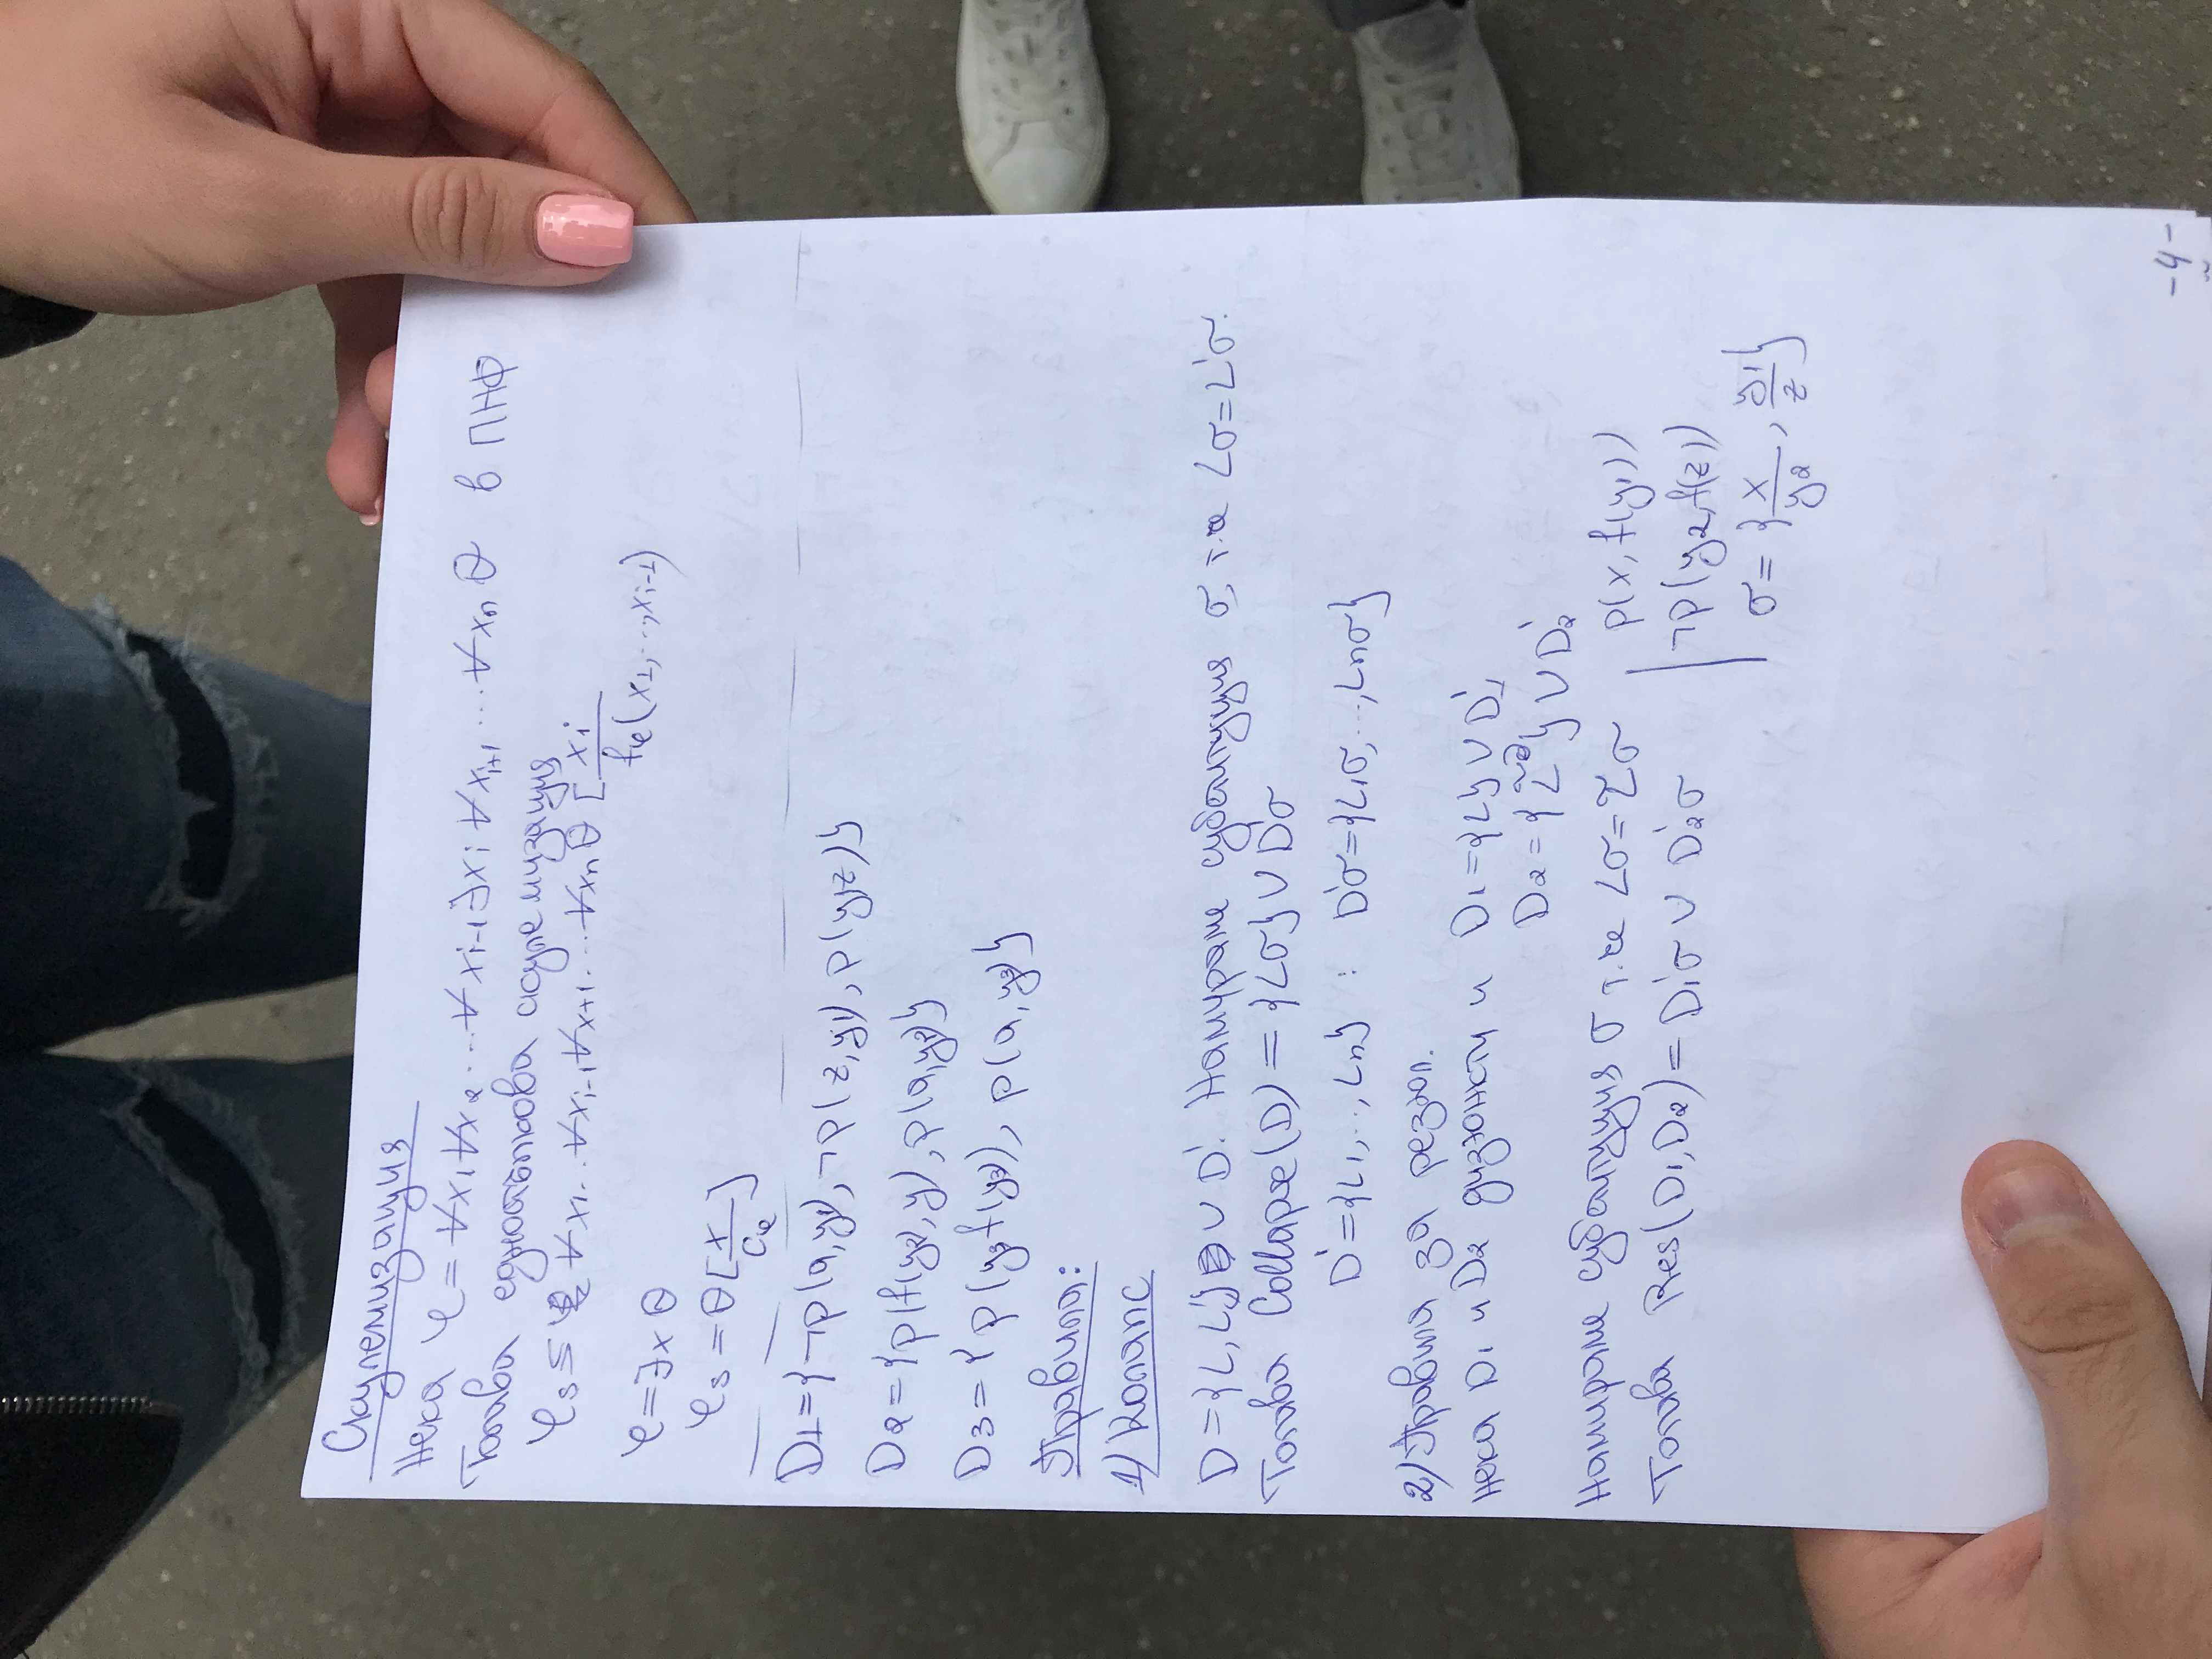 Скулемизация
Нека φ = ∀x₁∀x₂...∀xᵢ₋₁∃xᵢ∀xᵢ₊₁...∀xₙ θ в ПНФ
Тогава едностъпкова скулемизация
φₛ ≤ ∀x₁...∀xᵢ₋₁∀x+₁...∀xₙ θ [xᵢ / f_φ(x₁,...,xᵢ₋₁)
φ = ∃x θ
φₛ = θ[x / c_φ]
D1 = {¬p(a,y₁), ¬p(z,y₁), p(y₁z)}
D2 = {p(f(y₂),y), p(a,y₂)}
D3 = {p(y₃f(y₃)), p(a,y₃)}
Правила:
1) Колапс
D = {L,L'} ∪ D'. Намираме субституция σ, т.че Lσ=L'σ.
Тогава Collapse(D) = {Lσ} ∪ D'σ
D' = {L₁,...,Lₙ} : D'σ = {L₁σ,...,Lₙσ}
2) Правила за резол.
Нека D₁ и D₂ дизюнкти и D₁ = {L} ∪ D₁'
D₂ = {L̃} ∪ D₂'
Намираме субституция σ т.че Lσ = L̃σ
Тогава Res(D₁,D₂) = D₁'σ ∪ D₂'σ
p(x, f(y₁))
¬p(y₂,f(z))
σ = {x / y₂, y₁ / z}
-4-